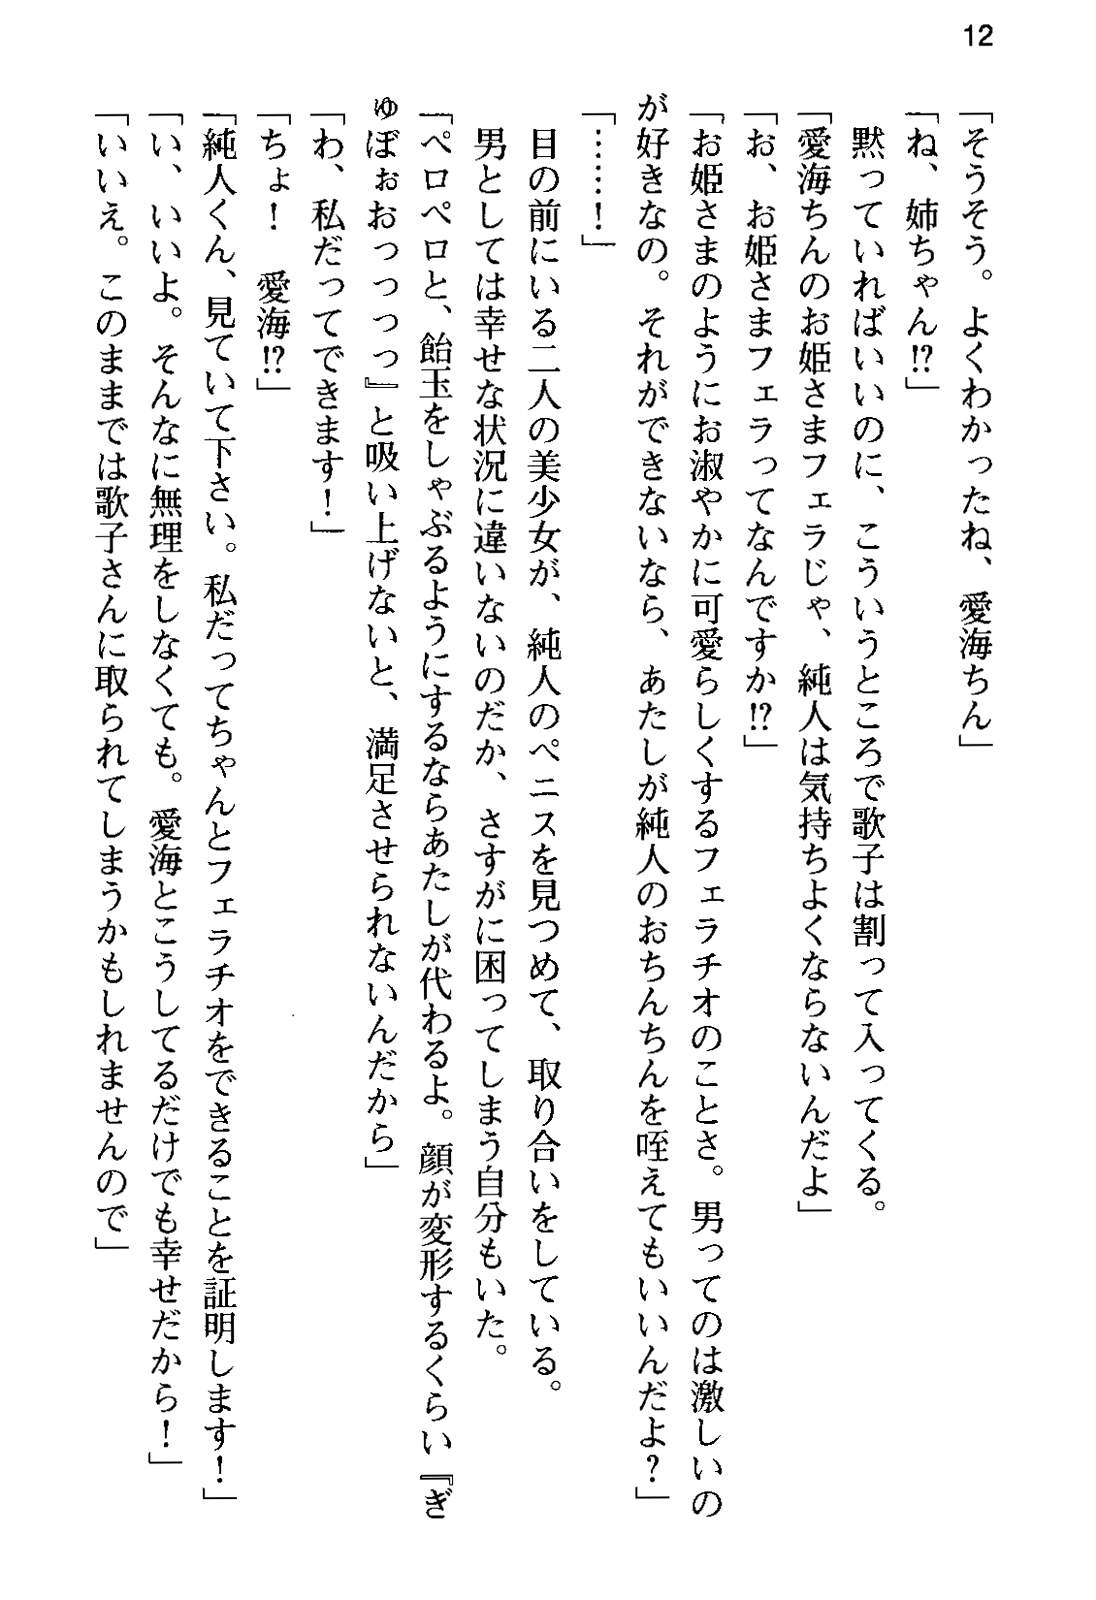 12
「そうそう。よくわかったね、愛海ちん」
「ね、姉ちゃん!?」
黙っていればいいのに、こういうところで歌子は割って入ってくる。
「愛海ちんのお姫さまフェラじゃ、純人は気持ちよくならないんだよ」
「お、お姫さまフェラってなんですか!?」
「お姫さまのようにお淑やかに可愛らしくするフェラチオのことさ。男ってのは激しいの
が好きなの。それができないなら、あたしが純人のおちんちんを咥えてもいいんだよ？」
「……！」
目の前にいる二人の美少女が、純人のペニスを見つめて、取り合いをしている。
男としては幸せな状況に違いないのだか、さすがに困ってしまう自分もいた。
「ペロペロと、飴玉をしゃぶるようにするならあたしが代わるよ。顔が変形するくらい『ぎ
ゅぼぉおっっっっ』と吸い上げないと、満足させられないんだから」
「わ、私だってできます！」
「ちょ！　愛海!?」
「純人くん、見ていて下さい。私だってちゃんとフェラチオをできることを証明します！」
「い、いいよ。そんなに無理をしなくても。愛海とこうしてるだけでも幸せだから！」
「いいえ。このままでは歌子さんに取られてしまうかもしれませんので」